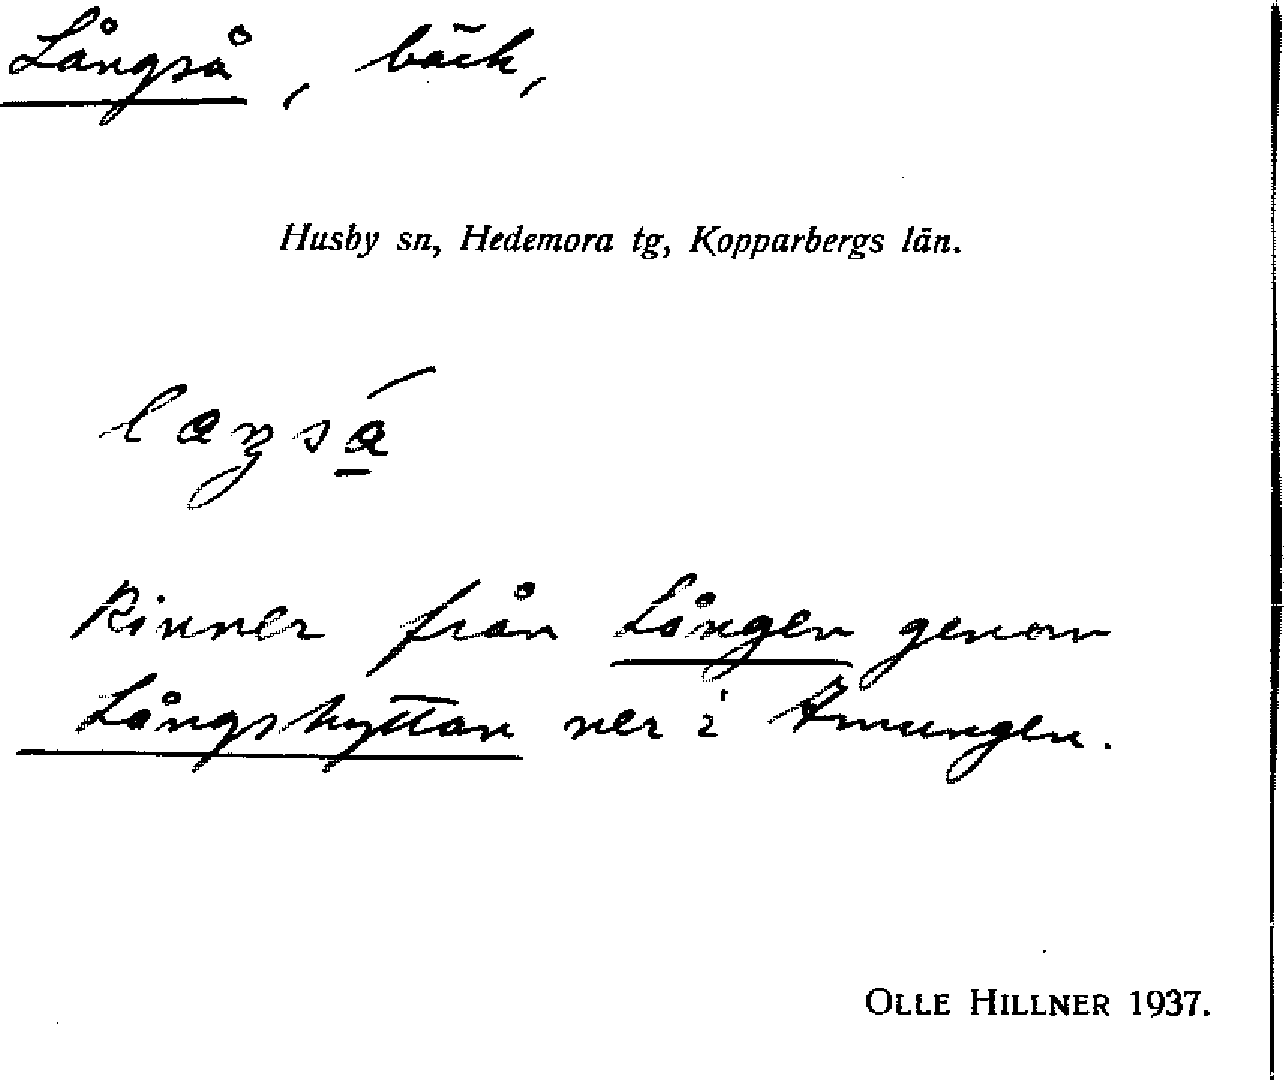 Långså, bäck,
Husby sn, Hedemora tg, Kopparbergs län.
Rinner från Lången genom
Långshyttan ner i Amungen.
OLLE HILLNER 1937.